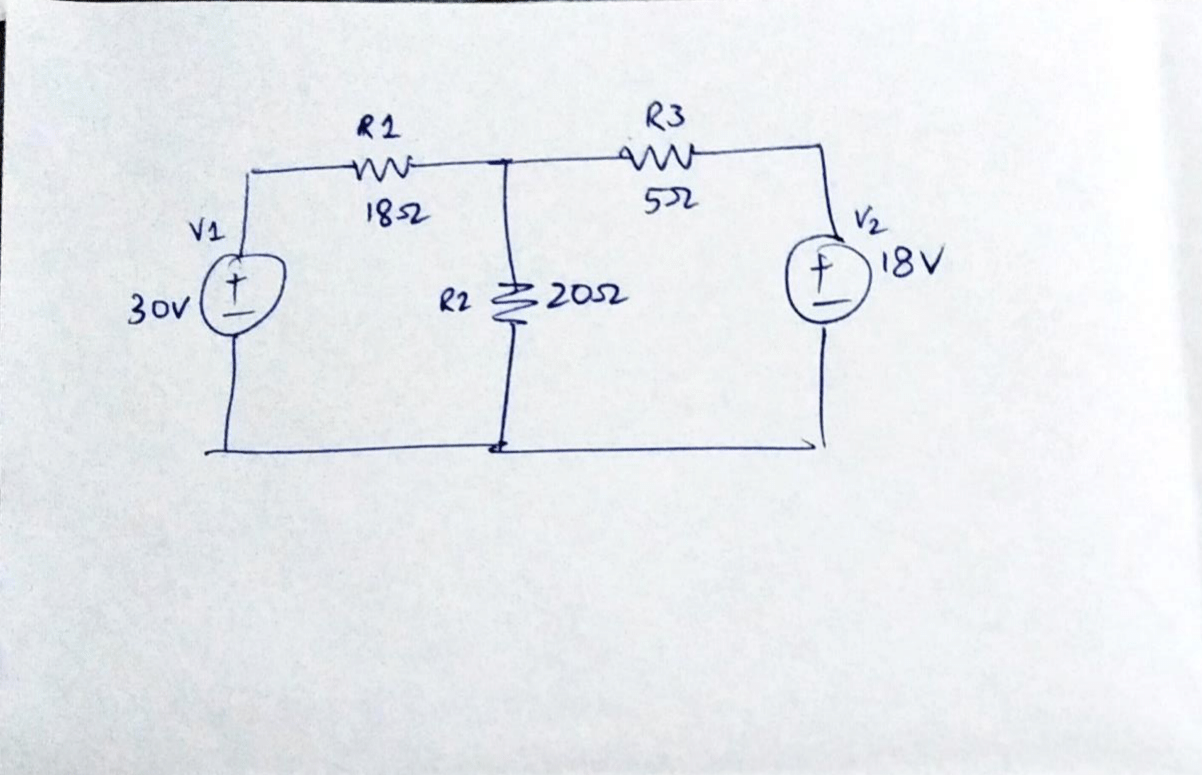 R1
18Ω
R3
5Ω
V1
30V
+
−
R2
20Ω
V2
18V
+
−